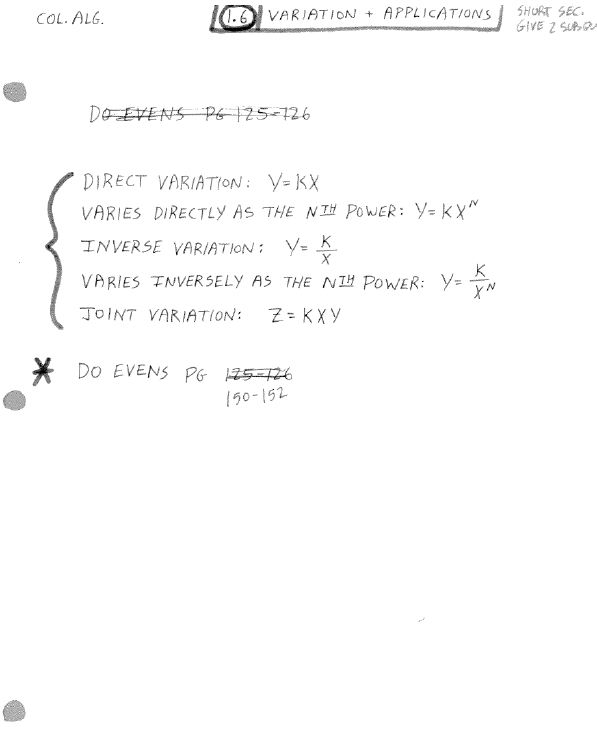 COL. ALG.
1.6 VARIATION + APPLICATIONS
SHORT SEC.
GIVE 2 
DO EVENS PG 125-126
DIRECT VARIATION: Y=KX
VARIES DIRECTLY AS THE NTH POWER: Y=KX^N
INVERSE VARIATION: Y=K/X
VARIES INVERSELY AS THE NTH POWER: Y=K/X^N
JOINT VARIATION: Z=KXY
* DO EVENS PG 125-126
150-152